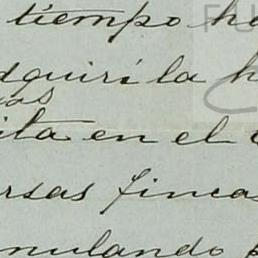 tiempo h
dquirí la h
os
ita en el
rsas finca
mulando